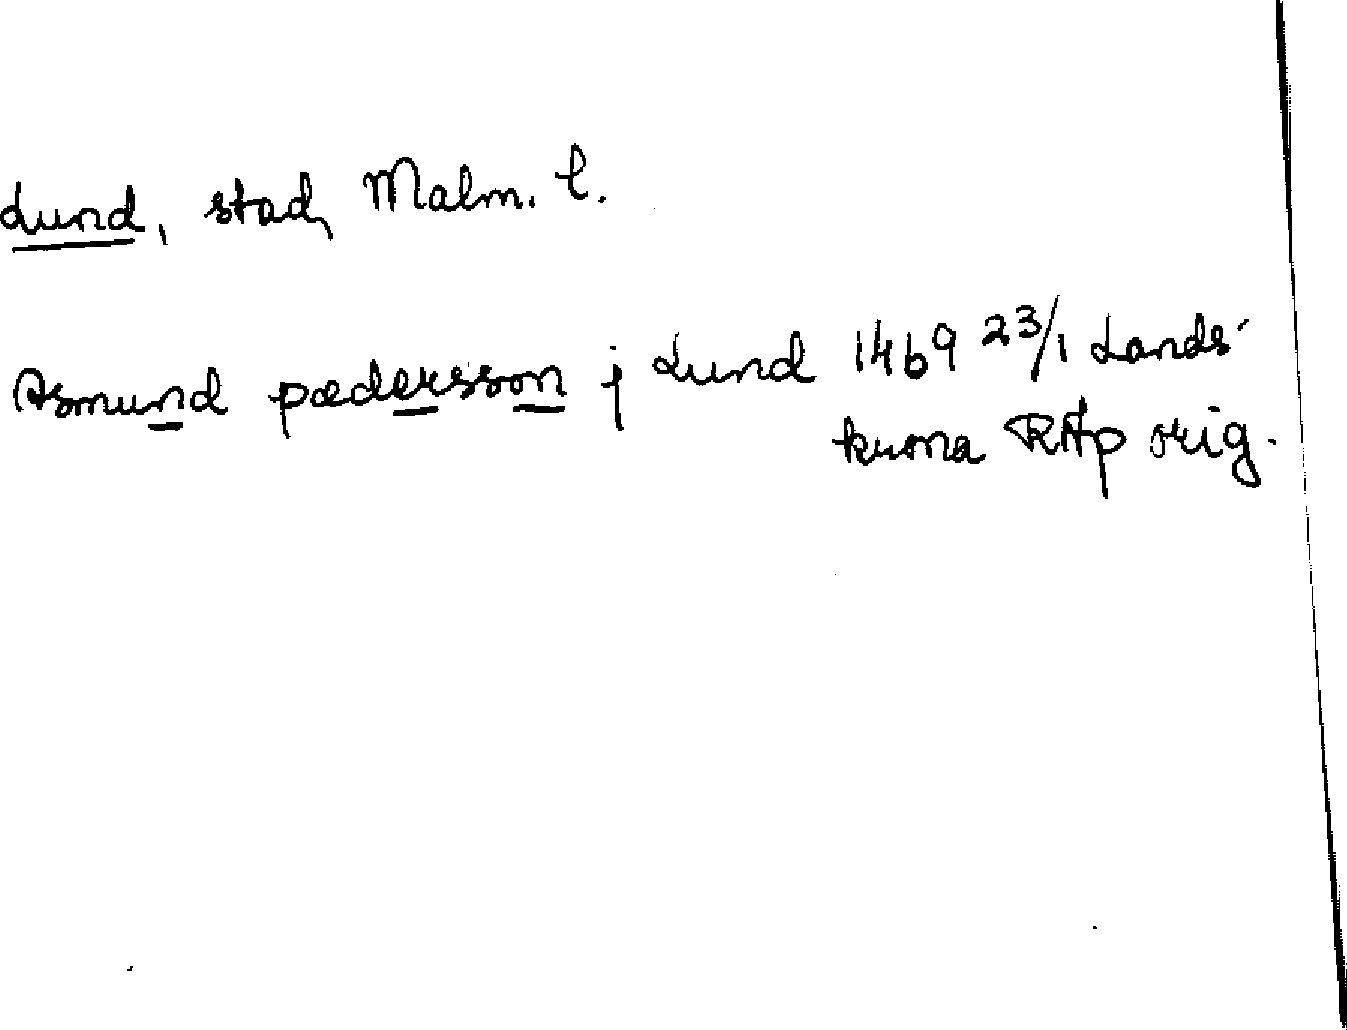 Lund, stad, Malm. l.
Asmund pædersson j Lund 1469 23/1 Lands-
krona RAp orig.